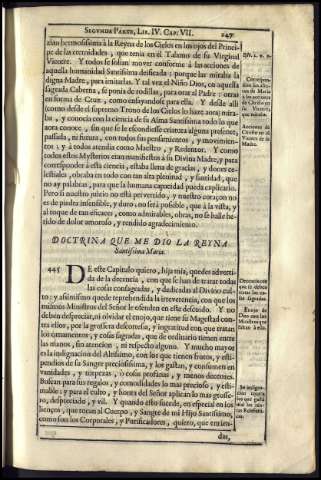 SEGVNDA PARTE, LIB. IV. CAP. VII.
247
zian hermosissima à la Reyna de los Cielos en los ojos del Princi-
pe de las eternidades, que tenia en el Talamo de su Virginal
Vientre. Y todos se solian mover conforme à las acciones de
aquella humanidad Santissima deificada; porque las miraba la
digna Madre, para imitarlas. Y tal vez el Niño Dios, en aquella
sagrada Caberna, se ponia de rodillas, para orar al Padre: otras
en forma de Cruz, como ensayandose para ella. Y desde alli
(como desde el supremo Trono de los Cielos lo haze aora) mira-
ba, y conocia con la ciencia de su Alma Santissima todo lo que
aora conoce, sin que se le escondiesse criatura alguna presente,
passada, ni futura, con todos sus pensamientos, y movimien-
tos: y à todos atendia como Maestro, y Redentor. Y como
todos estos Mysterios eran manifiestos à su Divina Madre, y para
corresponder à esta ciencia, estaba llena de gracias, y dones ce-
lestiales, obraba en todo con tan alta plenitud, y santidad, que
no ay palabras, para que la humana capacidad pueda explicarlo.
Pero si nuestro juizio no está pervertido, y nuestro coraçon no
es de piedra insensible, y duro, no será possible, que à la vista, y
al toque de tan eficazes, como admirables, obras, no se halle he-
rido de dolor amoroso, y rendido agradecimiento.
DOCTRINA QUE ME DIO LA REYNA
Santissima Maria.
445
DE este Capitulo quiero, hija mia, quedes adverti-
da de la decencia, con que se han de tratar todas
las cosas consagradas, y dedicadas al Divino cul-
to: y assimismo quede reprehendida la irreverencia, con que los
mismos Ministros del Señor le ofenden en este descuido. Y no
deben despreciar, ni olvidar el enojo, que tiene su Magestad con-
tra ellos, por la grossera descortesia, y ingratitud con que tratan
los ornamentos, y cosas sagradas, que de ordinario tienen entre
las manos, sin atencion, ni respecto alguno. Y mucho mayor
es la indignacion del Altissimo, con los que tienen frutos, y esti-
pendios de su Sangre preciosissima, y los gastan, y consumen en
vanidades, y torpezas, ò cosas profanas, y menos decentes.
Buscan para sus regalos, y comodidades lo mas precioso, y esti-
mable; y para el culto, y honra del Señor aplican lo mas grosse-
ro, despreciado, y vil. Y quando esto sucede, en especial en los
lienços, que tocan al Cuerpo, y Sangre de mi Hijo Santissimo,
como son los Corporales, y Purificadores, quiero, que entien-
das,
Acciones de
Christo en el
Vientre de la
Madre.
Enojo de
Dios con los
Ministros